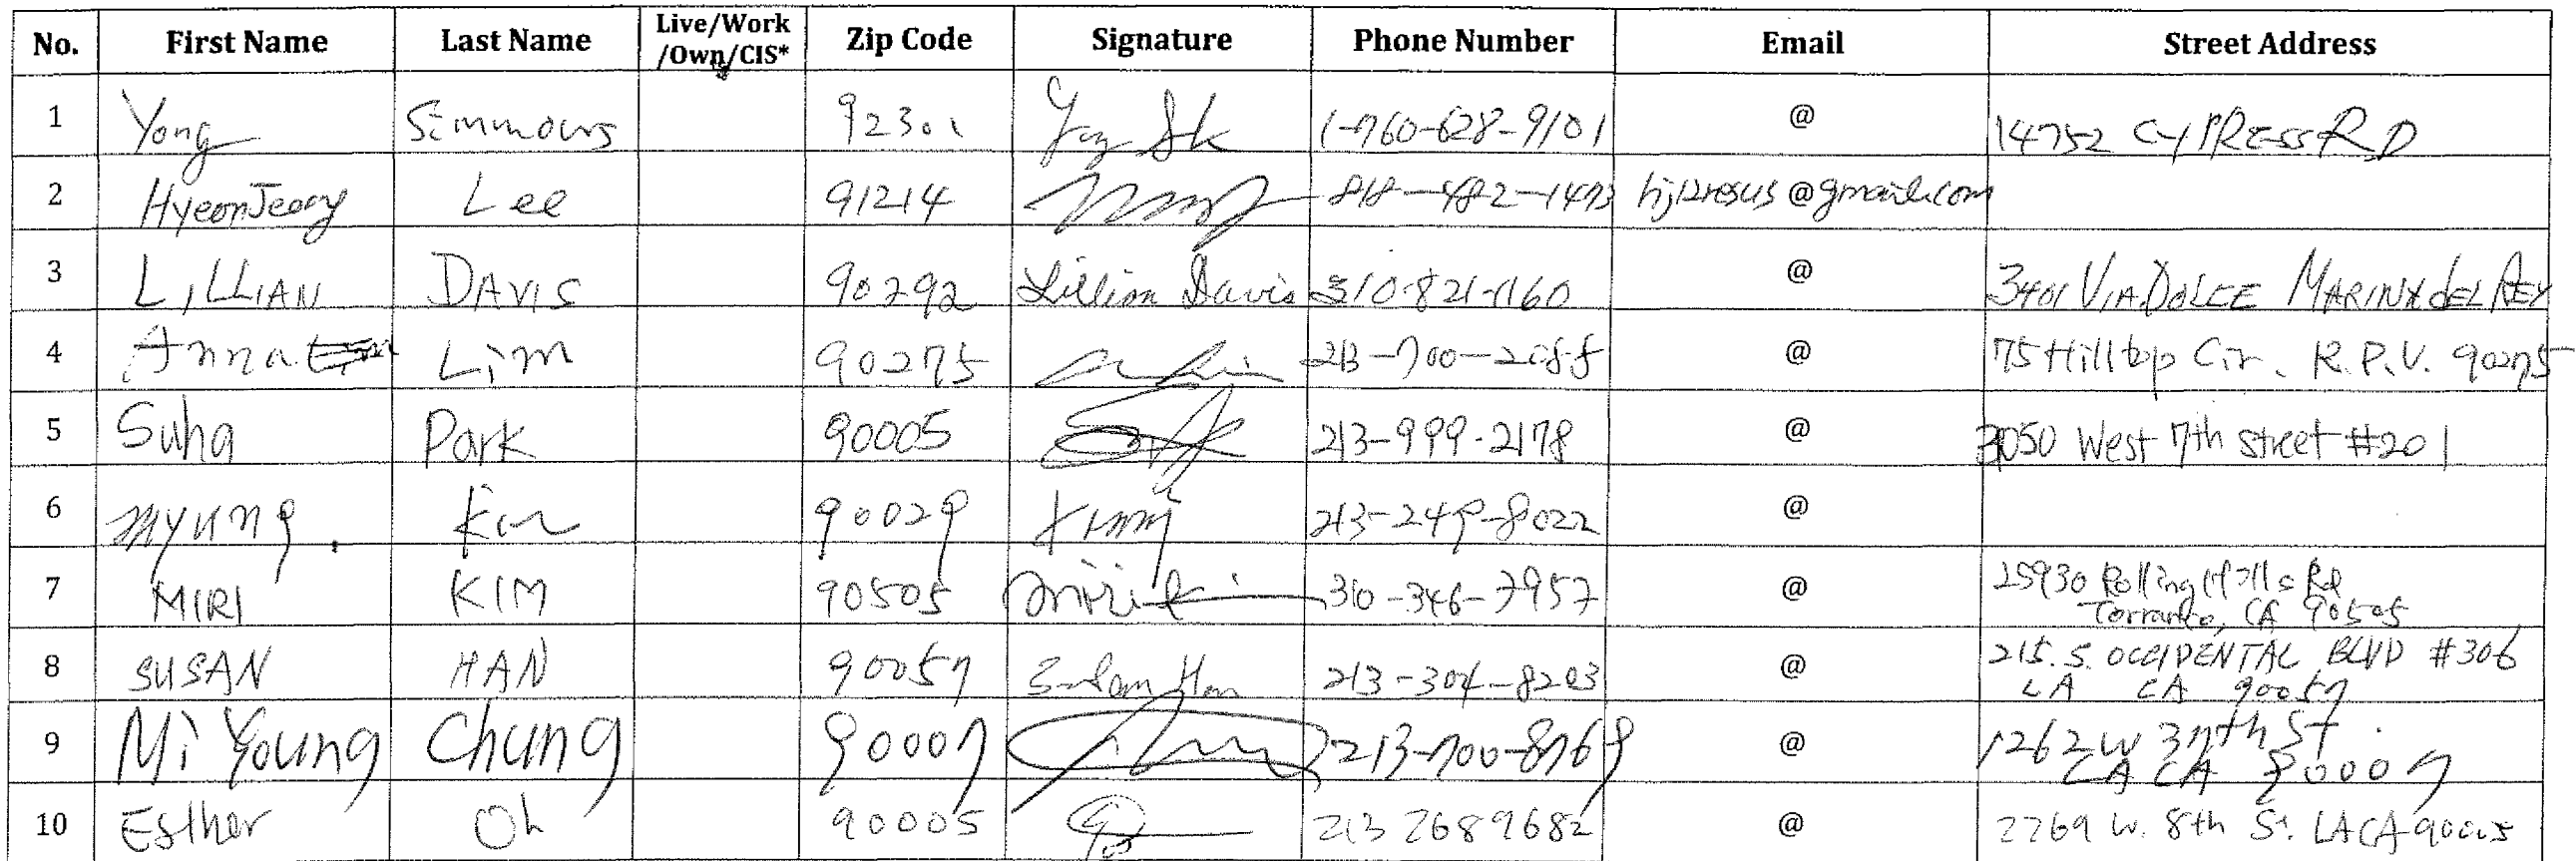 No. First Name Last Name Live/Work /Own/CIS* Zip Code Signature Phone Number Email Street Address
1 Yong Simmons 92301 1-760-628-9101 @ 14752 CYPRESS RD
2 HyeonJeong Lee 91214 818-482-1473 @gmail.com
3 LILLIAN DAVIS 90292 Lillian Davis 310-821-1160 @ 3401 VIA DOLCE MARINA del REY
4 Anna Lim 90275 213-700-2085 @ 75 Hilltop Cir. R.P.V. 90275
5 Suha Park 90005 213-999-2178 @ 3050 West 7th street #201
6 myung. Kim 90029 213-249-8022 @
7 MIRI KIM 90505 310-346-7957 @ 25930 Rolling Hills Rd
Torrance, CA 90505
8 SUSAN HAN 90057 Susan Han 213-304-8203 @ 215. S. OCCIDENTAL BLVD #306
LA CA 90057
9 Mi Young Chung 90007 213-700-8769 @ 1262 W 37th St.
LA CA 90007
10 Esther Oh 90005 213 268 9682 @ 2769 W. 8th St. LA CA 90005